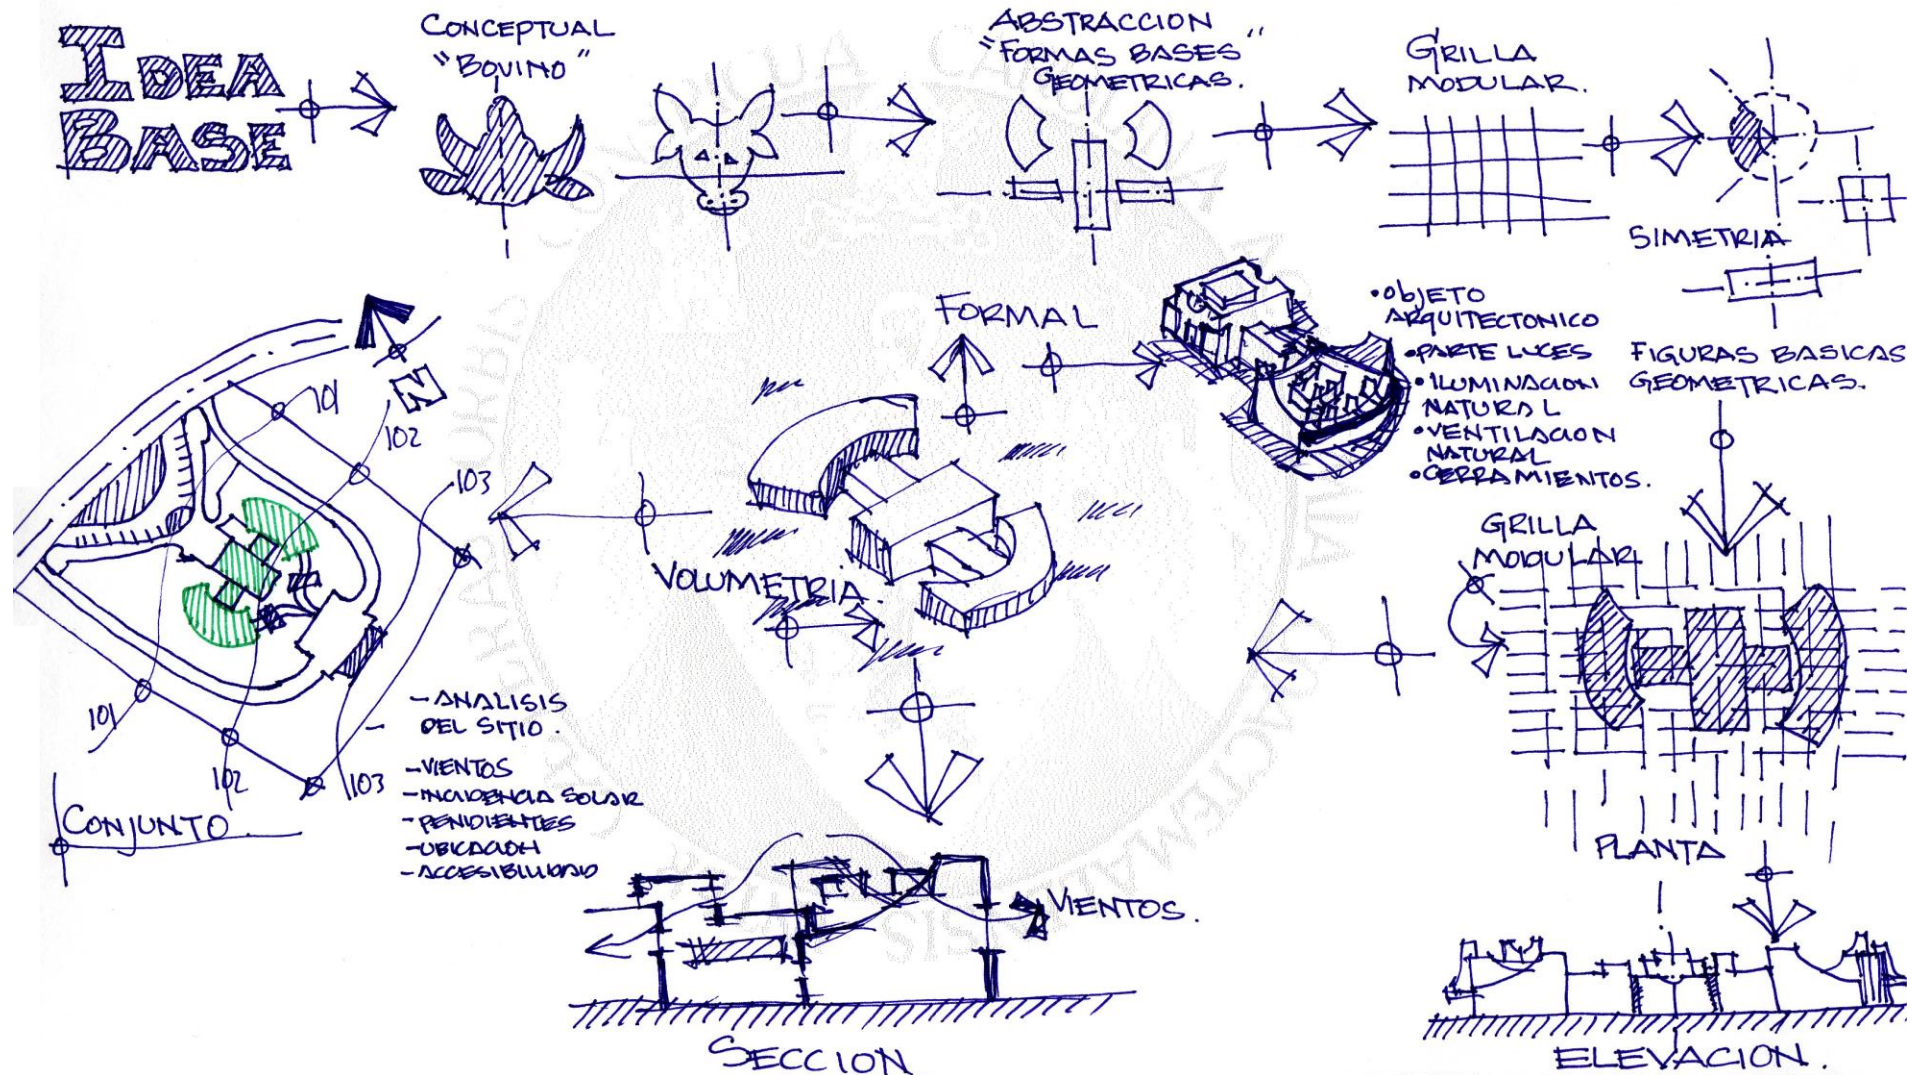 IDEA
BASE
CONCEPTUAL
"BOVINO"
ABSTRACCION
"FORMAS BASES"
GEOMETRICAS.
GRILLA
MODULAR.
SIMETRIA
FIGURAS BASICAS
GEOMETRICAS.
FORMAL
•OBJETO
ARQUITECTONICO
•PARTE LUCES
•ILUMINACION
NATURAL
•VENTILACION
NATURAL
•CERRAMIENTOS.
N
101
102
103
101
102
103
CONJUNTO
-ANALISIS
DEL SITIO.
-VIENTOS
-INCIDENCIA SOLAR
-PENDIENTES
-UBICACION
-ACCESIBILIDAD
VOLUMETRIA.
GRILLA
MODULAR
PLANTA
VIENTOS.
SECCION
ELEVACION.